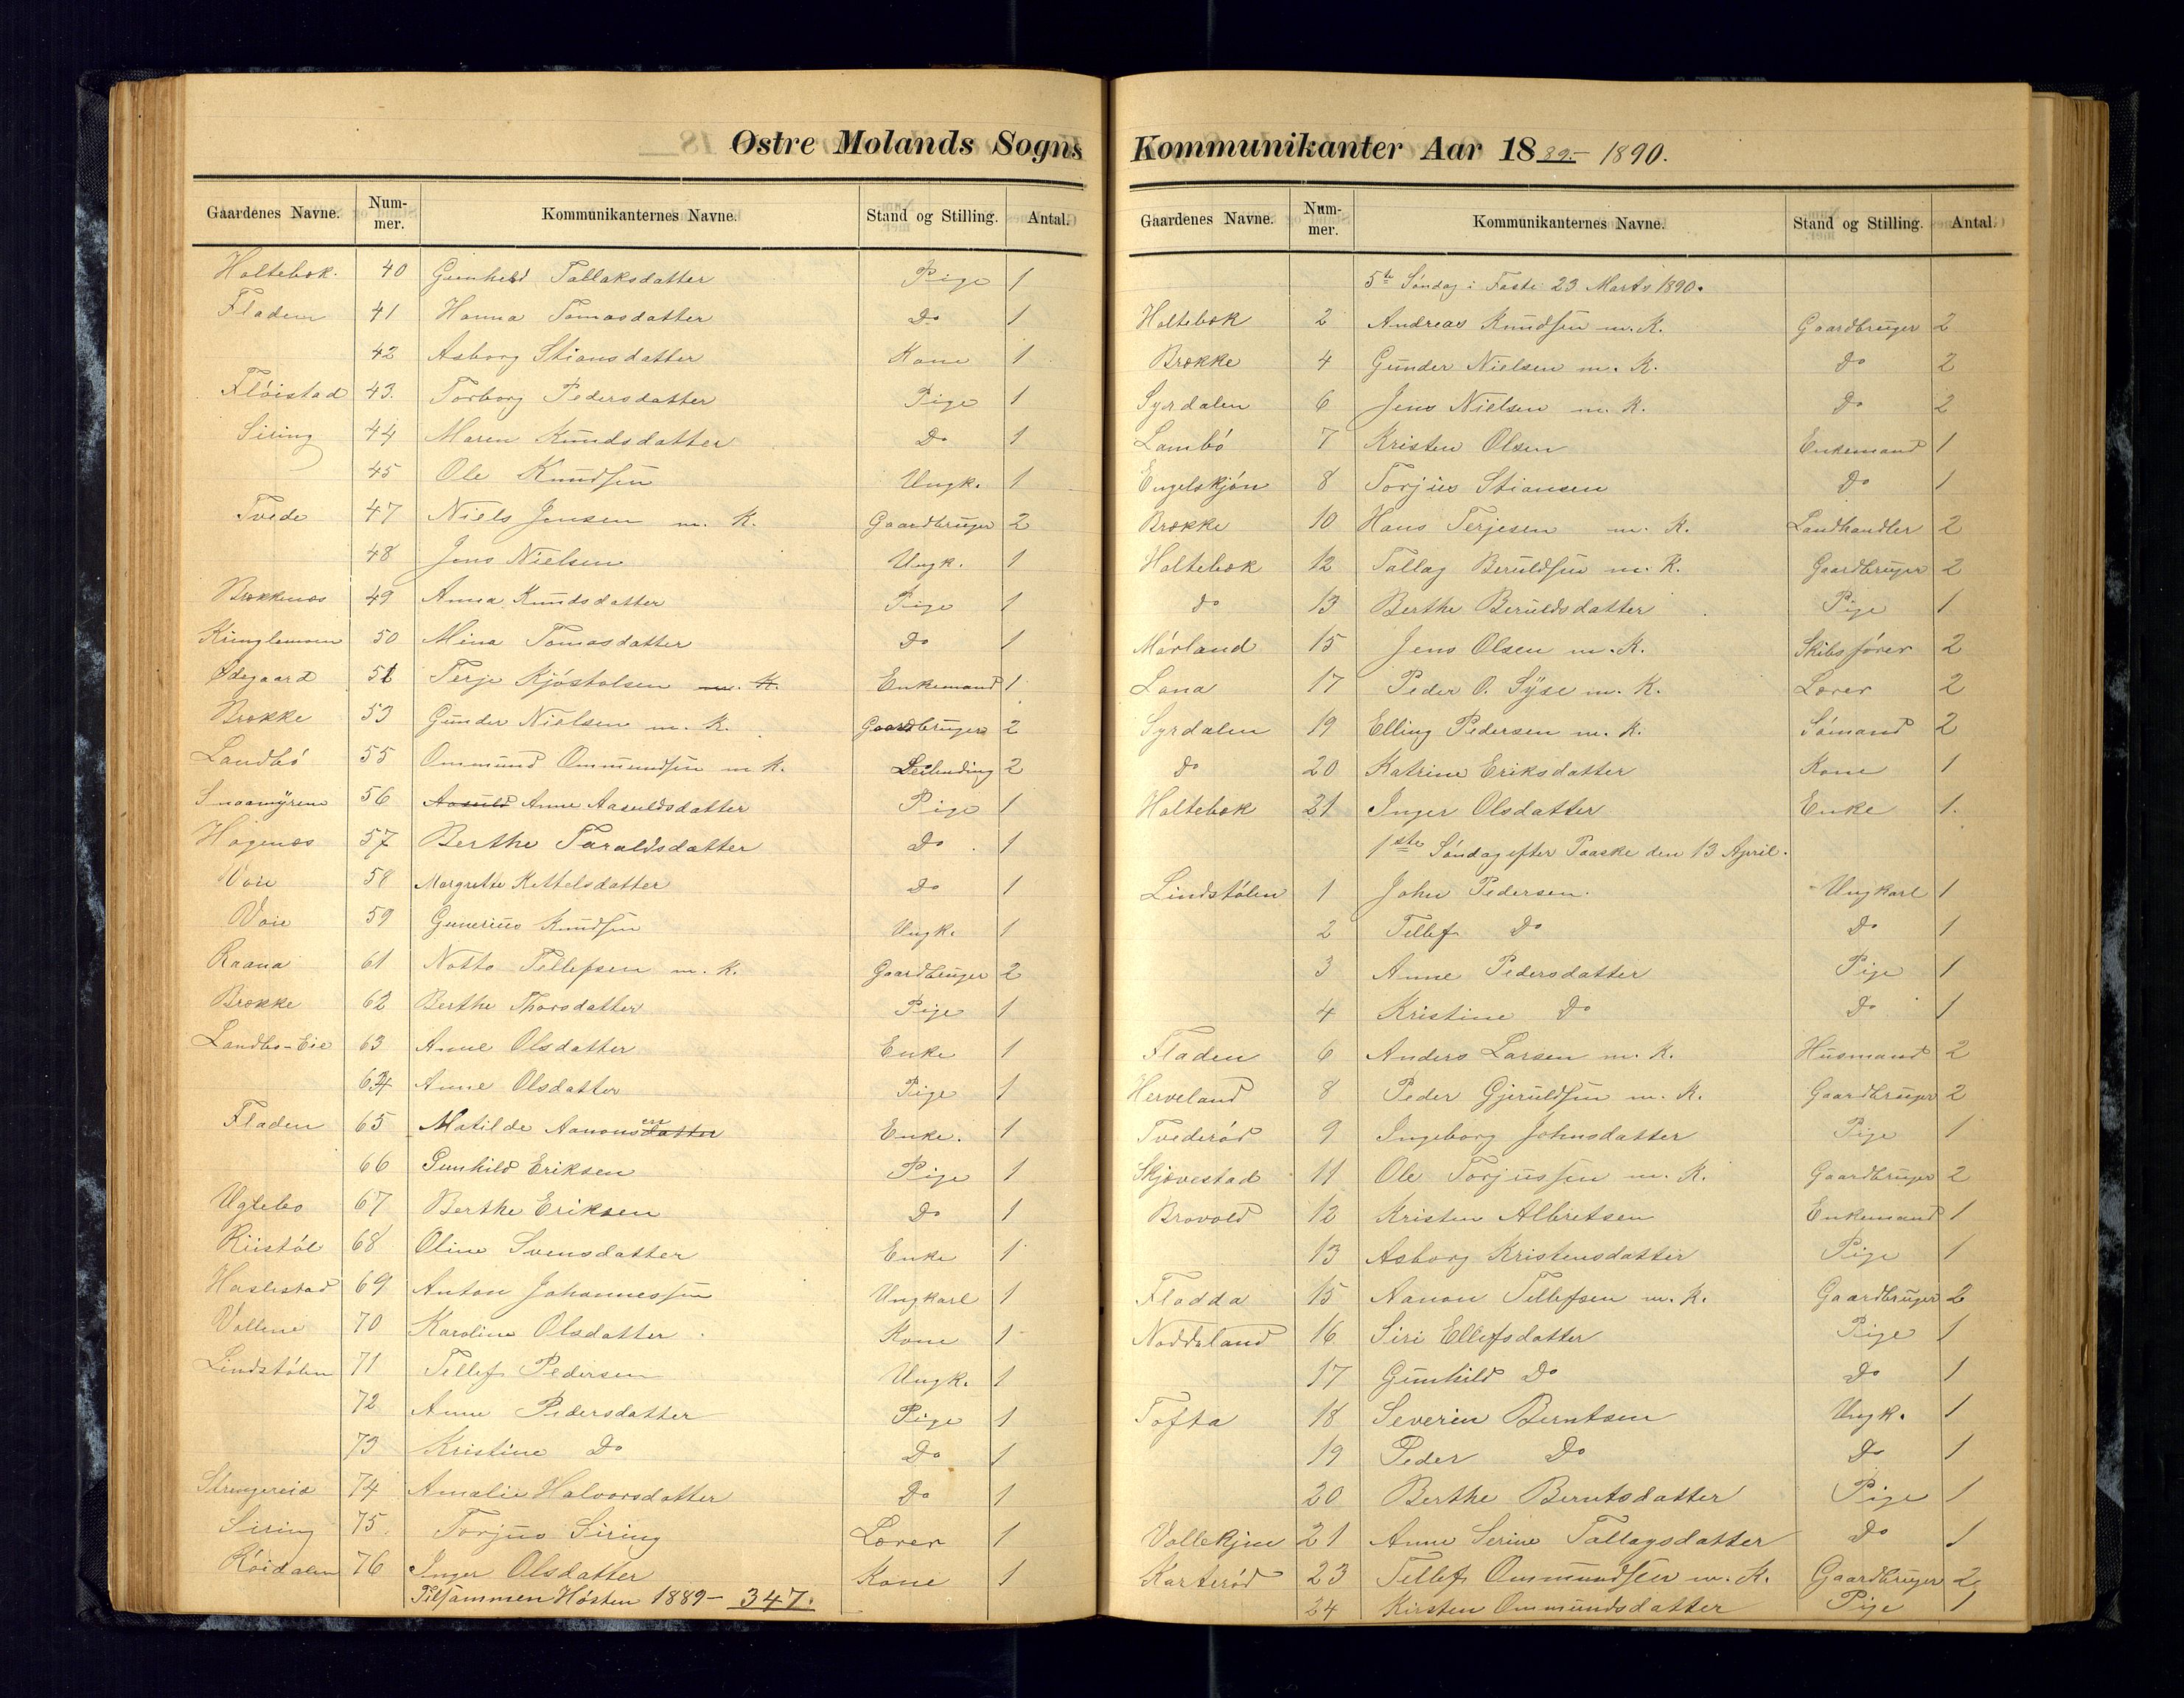 Østre Molands Sogns
Gaardenes Navne. Nummer. Kommunikanternes Navne. Stand og Stilling. Antal.
Holtebæk. 40 Gunhild Tallaksdatter Pige 1
Fladen 41 Hanna Tomasdatter Do 1
42 Asborg Stiansdatter Kone 1
Fløistad 43. Torborg Pedersdatter Pige 1
Siring 44 Maren Knudsdatter Do 1
45 Ole Knudsen Ungk. 1
Tvede 47 Niels Jensen m. K. Gaardbruger 2
48 Jens Nielsen Ungk. 1
Brækkenæs 49 Anna Knudsdatter Pige 1
Kringlemoen 50 Mina Tomasdatter Do 1
Ødegaard 51 Terje Kjøstolsen m. K. Enkemand 1
Brække 53 Gunder Nielsen m. K. Gaardbruger 2
Landbø 55 Ommund Ommundsen m K. Leilending 2
Snaamyren 56 Aasuld Anne Aasuldsdatter Pige 1
Hagenæs 57 Berthe Taraldsdatter Do 1
Voie 58 Margrethe Kittelsdatter Do 1
Voie 59 Gunerius Knudsen Ungk. 1
Raana 61 Notto Tellefsen m. K. Gaardbruger 2
Brække 62 Berthe Thorsdatter Pige 1
Landbo-Eie 63 Anne Olsdatter Enke 1
64 Anne Olsdatter Pige 1
Fladen 65 Matilde Aanonsdatter en Enke. 1
66 Gunhild Eriksen Pige 1
Uglebo 67 Berthe Eriksen Do 1
Riistøl 68 Oline Svensdatter Enke 1
Haslestad 69 Anton Johannessen Ungkarl 1
Vollene 70 Karoline Olsdatter Kone 1
Lindstølen 71 Tellef Pedersen Ungk. 1
72 Anne Pedersdatter Pige 1
73 Kristine Do Do 1
Strengereid 74 Amalie Halvorsdatter Do 1
Siring 75. Torjus Siring Lærer 1
Røidalen 76 Inger Olsdatter Kone 1
Tilsammen Høsten 1889 - 347.
Kommunikanter Aar 1889.- 1890.
Gaardenes Navne. Nummer. Kommunikanternes Navne. Stand og Stilling. Antal.
5te Søndag i Faste 23 Marts 1890.
Holtebæk 2 Andreas Knudsen m. K. Gaardbruger 2
Brække 4 Gunder Nielsen m. K. Do 2
Syrdalen 6 Jens Nielsen m. K. Do 2
Lambø 7 Kristen Olsen Enkemand 1
Engelskjøn 8 Torjus Stiansen Do 1
Brække 10 Hans Terjesen m. K. Landhandler 2
Holtebæk 12 Tallag Beruldsen m. K. Gaardbruger 2
do 13 Berthe Beruldsdatter Pige 1
Mørland 15 Jens Olsen m. K. Skibsfører 2
Lona 17 Peder O. Syse m. K. Lærer 2
Syrdalen 19 Elling Pedersen m. K. Sømand 2
do 20 Katrine Eriksdatter Kone 1
Holtebæk 21 Inger Olsdatter Enke 1.
1ste Søndag efter Paaske den 13 April.
Lindstølen 1 John Pedersen. Ungkarl 1
2 Tellef Do Do 1
3 Anne Pedersdatter Pige 1
4 Kristine Do Do 1
Fladen 6 Anders Larsen m. K. Husmand 2
Herveland 8 Peder Gjeruldsen m. K. Gaardbruger 2
Tvederød 9 Ingeborg Johnsdatter Pige 1
Skjævestad 11 Ole Torjussen m. K. Gaardbruger 2
Brovold 12 Kristen Albretsen Enkemand 1
13 Asborg Kristensdatter Pige 1
Flodda 15 Aanon Tellefsen m. K. Gaardbruger 2
Noddeland 16 Siri Ellefsdatter Pige 1
17 Gunhild Do Do 1
Tofta 18 Severin Berntsen Ungk. 1
19 Peder Do Do 1
20 Berthe Berntsdatter Pige 1
Vollekjen 21 Anne Serine Tallagsdatter Do 1
Karterød 23 Tellef Ommundsen m. K. Gaardbruger 2
24 Kirsten Ommundsdatter Pige 1